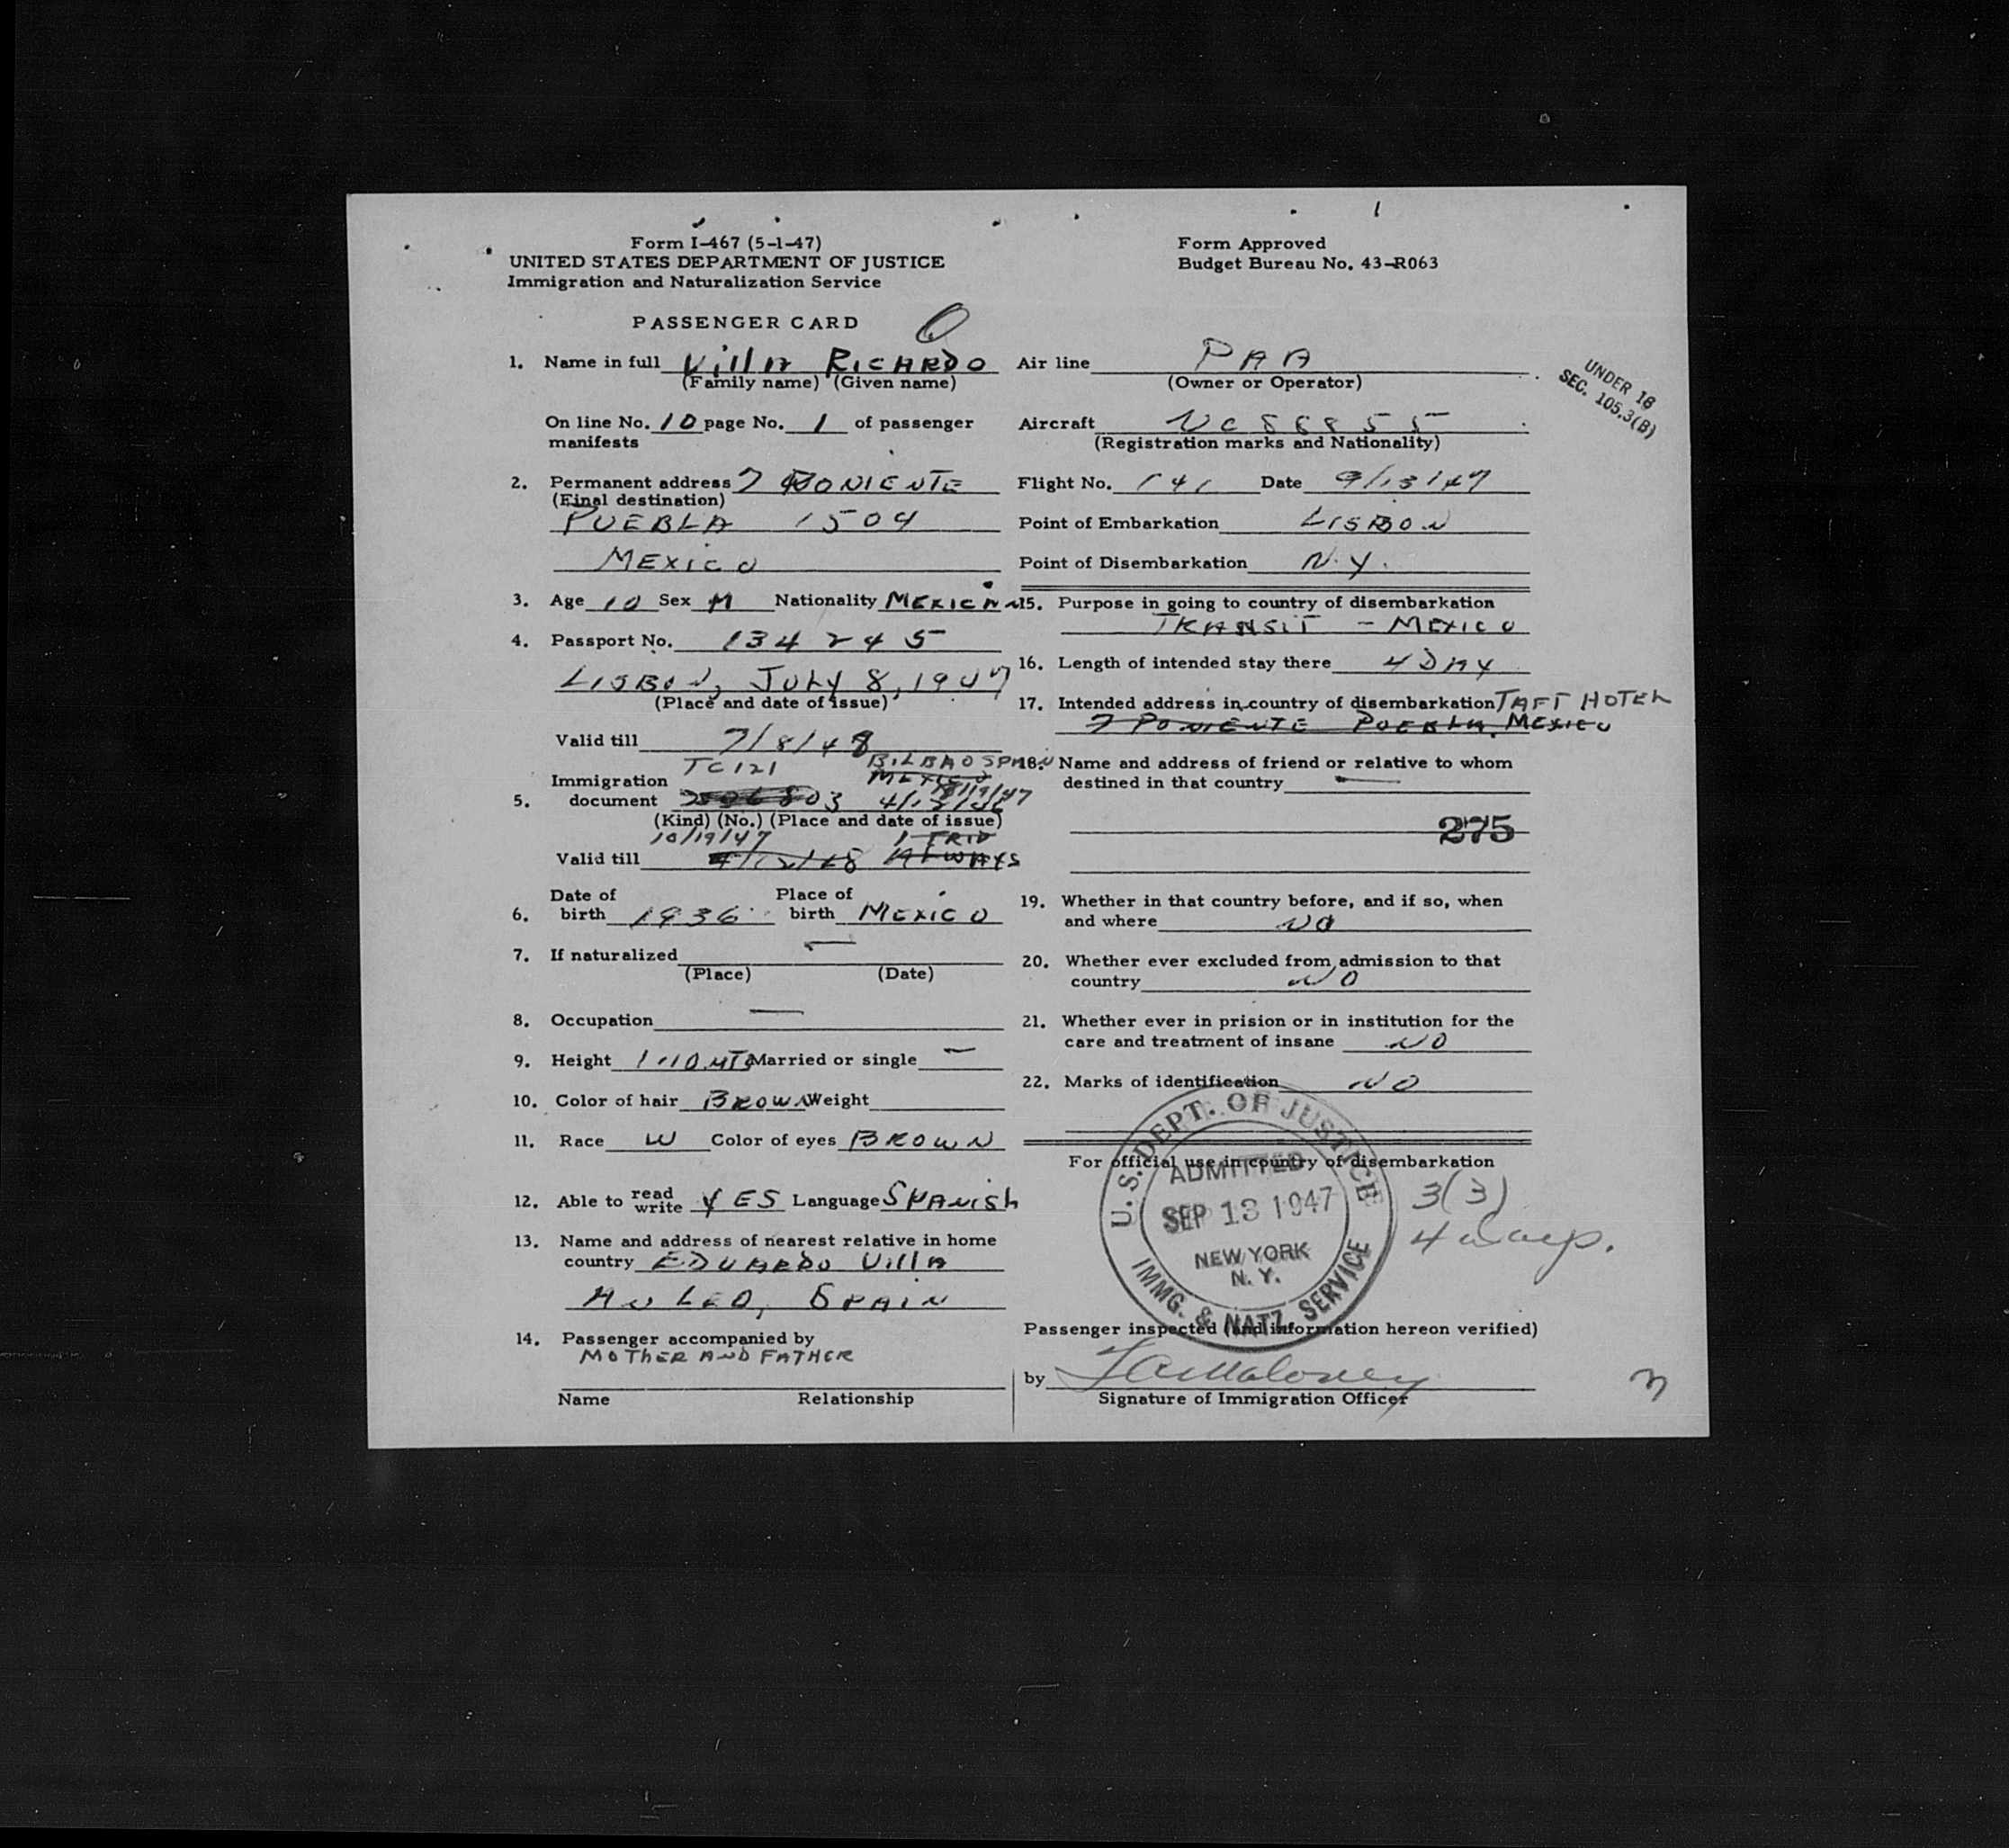 Form I-467 (5-1-47)
UNITED STATES DEPARTMENT OF JUSTICE
Immigration and Naturalization Service
PASSENGER CARD
1. Name in full Villa RICARDO
(Family name) (Given name)
On line No. 10 page No. 1 of passenger
manifests
2. Permanent address 7 PONIENTE
(Final destination)
PUEBLA 1504
MEXICO
3. Age 10 Sex M Nationality MEXICAN
4. Passport No. 134245
LISBON, JULY 8, 1947
(Place and date of issue)
Valid till 7/8/48
TC121 BILBAO SPAIN
MEXICO
Immigration
5. document
(Kind) (No.) (Place and date of issue)
10/19/47 1 TRIP
Valid till ALWAYS
Date of Place of
6. birth 1936 birth MEXICO
7. If naturalized —
(Place) (Date)
8. Occupation —
9. Height 1.10 MTS Married or single —
10. Color of hair BROWN Weight
11. Race W Color of eyes BROWN
12. Able to read write YES Language SPANISH
13. Name and address of nearest relative in home
country EDUARDO Villa
SPAIN
14. Passenger accompanied by
MOTHER AND FATHER
Name Relationship
Form Approved
Budget Bureau No. 43-R063
Air line PAA
(Owner or Operator)
UNDER 16
SEC. 105.3(B)
Aircraft NC88855
(Registration marks and Nationality)
Flight No. 141 Date 9/13/47
Point of Embarkation LISBON
Point of Disembarkation N.Y.
15. Purpose in going to country of disembarkation
TRANSIT - MEXICO
16. Length of intended stay there 4 DAY
17. Intended address in country of disembarkation TAFT HOTEL
7 PONIENTE PUEBLA, MEXICO
18. Name and address of friend or relative to whom
destined in that country —
275
19. Whether in that country before, and if so, when
and where NO
20. Whether ever excluded from admission to that
country NO
21. Whether ever in prision or in institution for the
care and treatment of insane NO
22. Marks of identification NO
For official use in country of disembarkation
U.S. DEPT. OF JUSTICE
ADMITTED
SEP 13 1947
NEW YORK
N. Y.
IMMG. & NATZ. SERVICE
3(3)
4 days.
Passenger inspected (and information hereon verified)
by
Signature of Immigration Officer